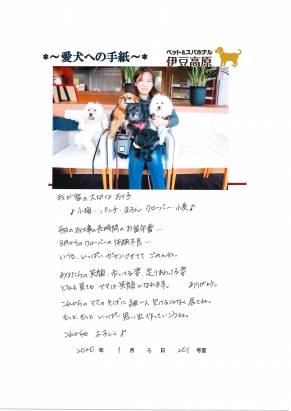 *～愛犬への手紙～*
ペット&スパホテル
伊豆高原
我が家の大切なお子
♪小梅・パンチ・まろん クローバー・小麦♪
平日のお仕事の長時間のお留守番…
8月からクローバーの体調不良…
いつも、いっぱいガマンさせてて ごめんね。
あなたたちの笑顔、歩いてる姿、走りまわってる姿
どれを見てもママは笑顔になれます。 ありがとう。
これからもママのそばに誰一人欠けることなく居てね。
もっと、もっと いっぱい思い出作っていこうね。
これからも よろしく♪
2020 年 1 月 3 日 201 号室